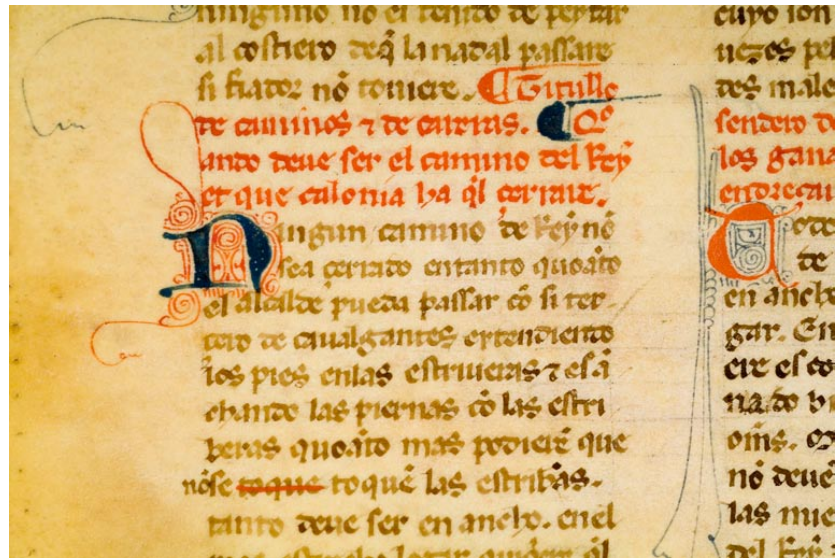 ninguno no el tenido de peytar
al costiero deq̃ la nadal passare
si fiador nõ touiere. ¶ Titullo
de caminos ⁊ de carras. ¶ Qͦ
ando deue ser el camino del Rey
et que calonia ha q̃l cerrare.
Ningun camino de Rey nõ
sea cerrado entanto quoãto
el alcalde pueda passar cõ si ter-
cero de caualgantes extendiendo
los pies enlas estriueras ⁊ esã
chando las piernas cõ las estri
beras quoãto mas podierẽ que
nõse toque toquẽ las estribãs.
tanto deue ser en ancho. enel
mas estrecho logar
cuyo son
uezes
des male
sendero
los gana
endreçar
de
en ancho
gar. En
eire es
nado
oms.
nõ deue
las
del Rey